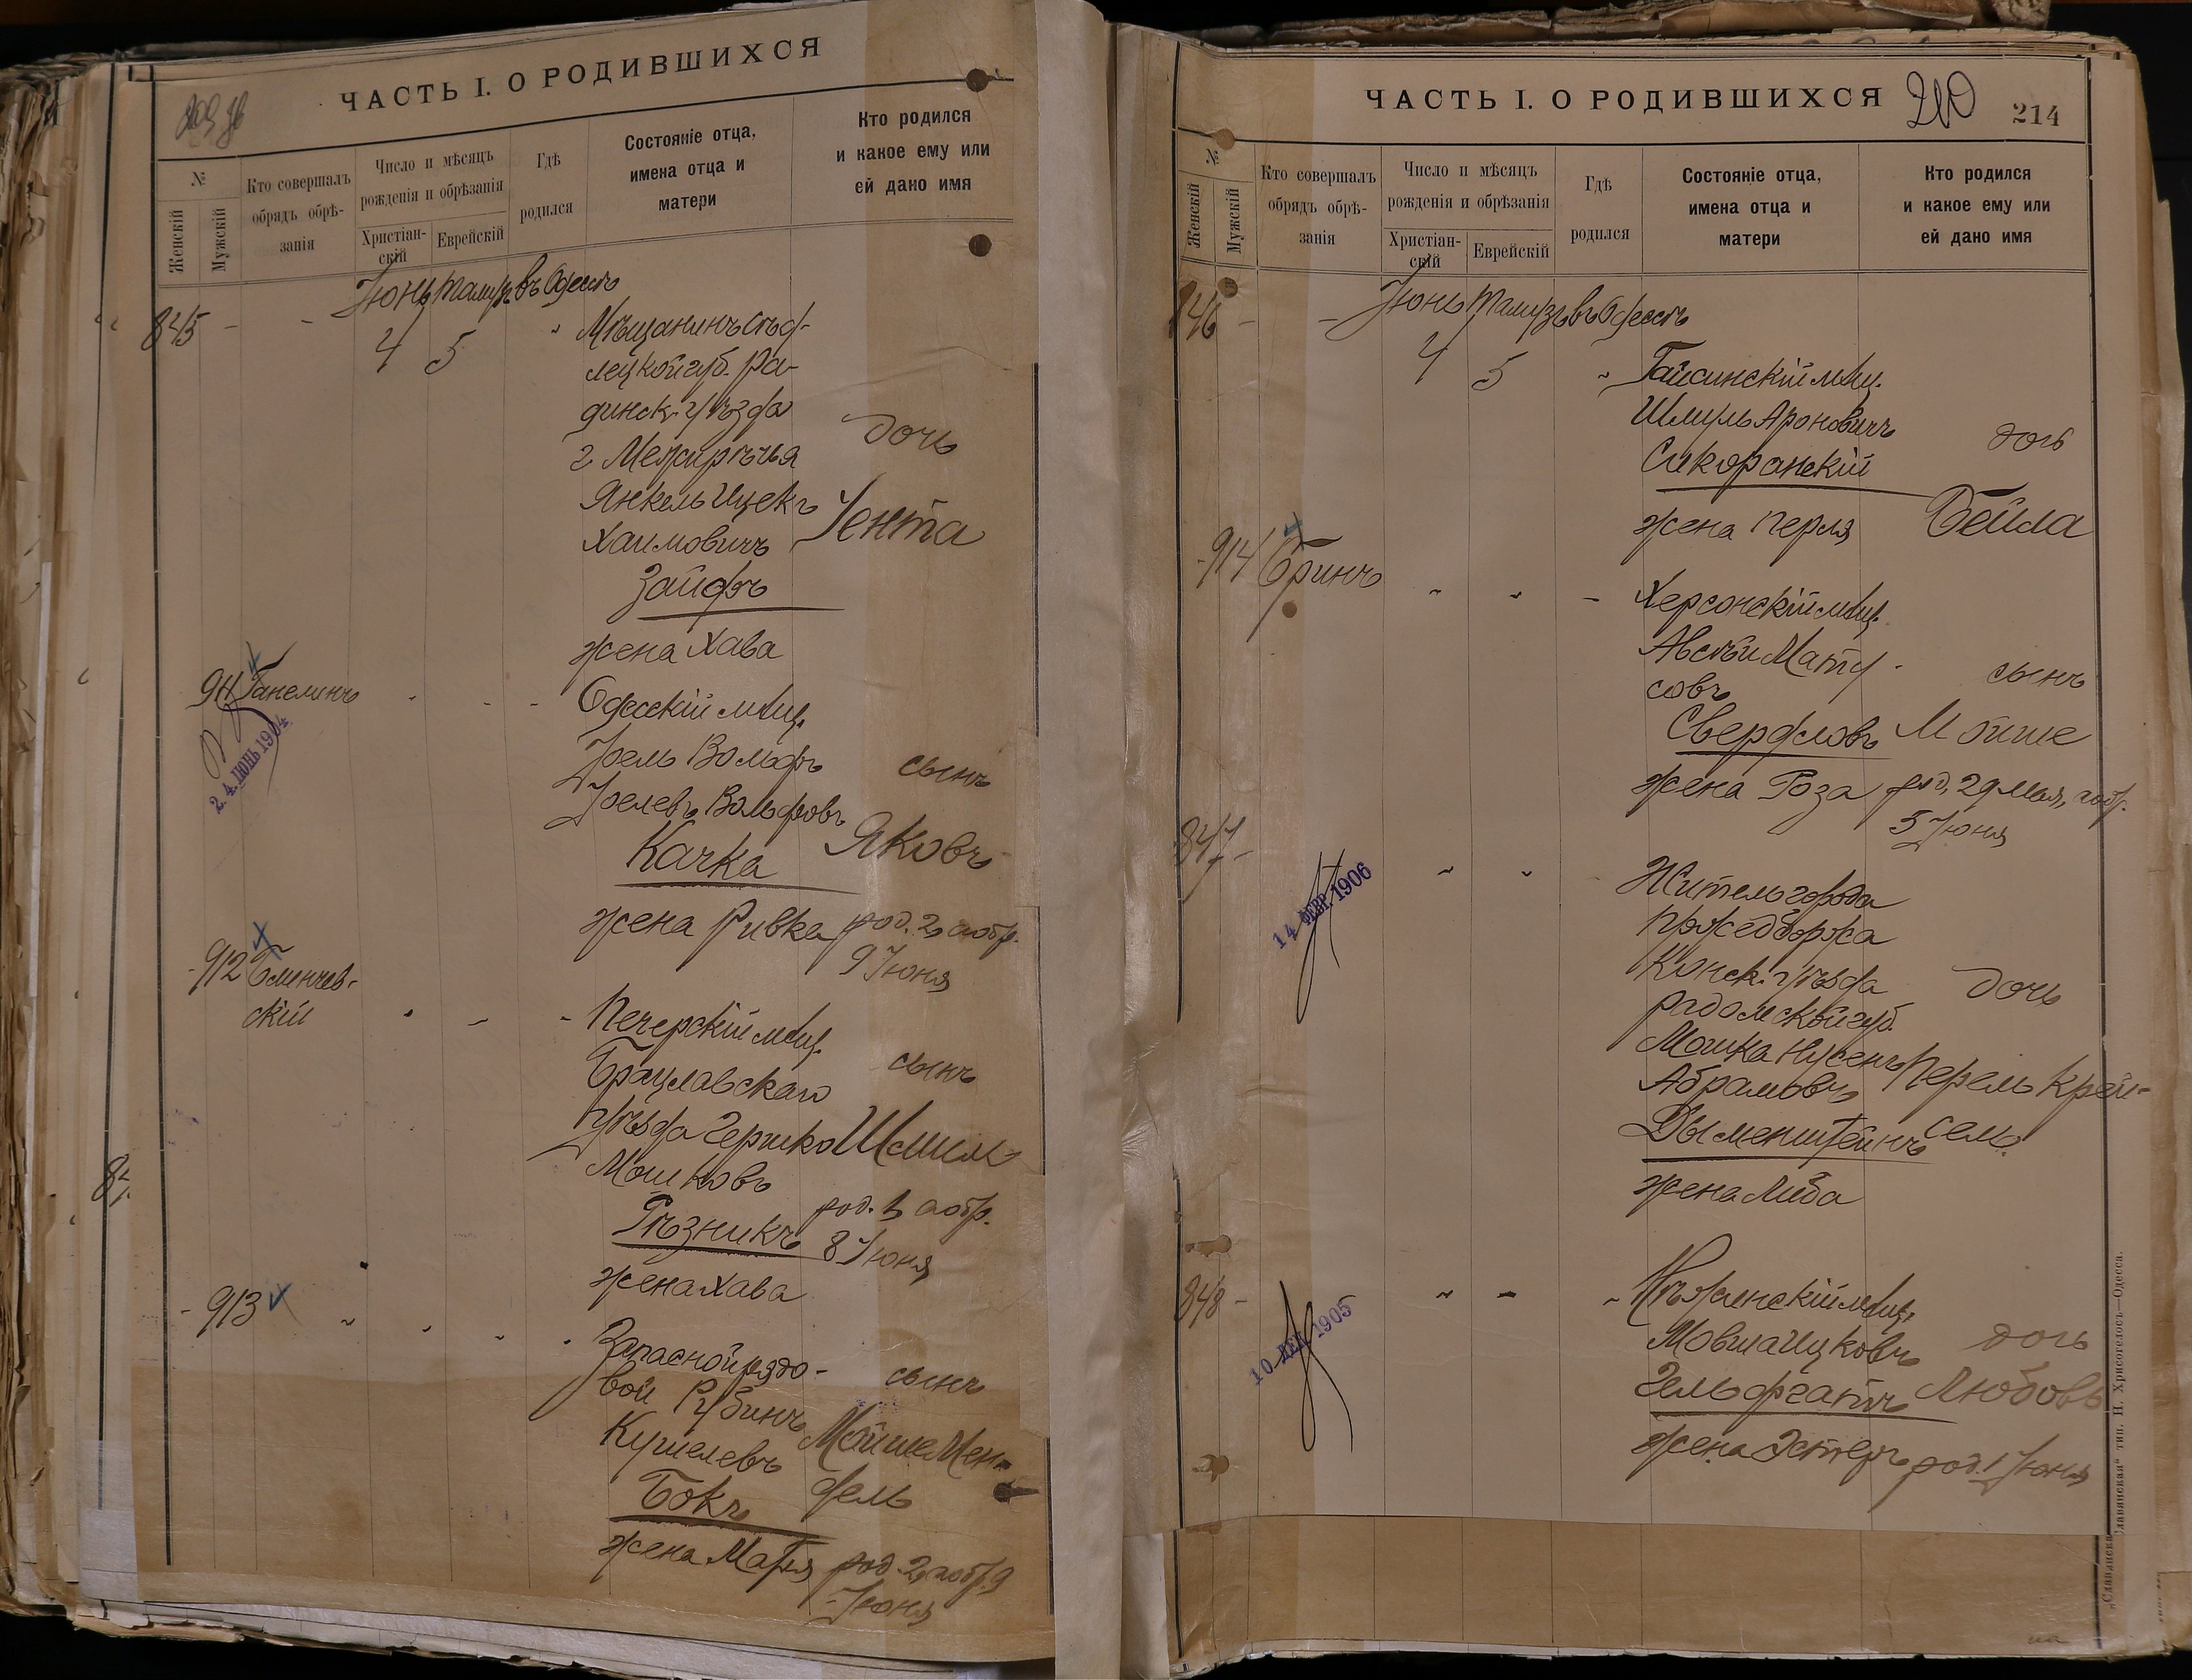 ЧАСТЬ I. О РОДИВШИХСЯ
№
Женскій
Мужскій
Кто совершалъ
обрядъ обрѣ-
занія
Число и мѣсяцъ
рожденія и обрѣзанія
Христіан-
скій
Еврейскій
Гдѣ
родился
Состояніе отца,
имена отца и
матери
Кто родился
и какое ему или
ей дано имя
Іюнь Тамузъ въ Одессѣ
845 - - 4 5 " Мѣщанинъ Сѣд-
лецкой губ. Ра-
динск. уѣзда
г. Межирѣчья
дочь
Янкель Ицекъ
Хаимовичъ
Іента
Зайфъ
жена Хава
911 Ганелинъ
24 ІЮНЬ 1904
Одесскій мѣщ.
Іуель Вольфъ
сынъ
Іуелевъ Вольфовъ
Качка
Яковъ
жена Ривка род. 2, а обр.
9 Іюня
912 Бленчев-
скій
Печерскій мѣщ.
Брацлавскаго
сынъ
уѣзда Гершко
Шмил
Мошковъ
Рѣзникъ
род. 1, а обр.
8 Іюня
жена Хава
- 913
Запасной рядо-
вой Рубинъ
сынъ
Кушелевъ
Мойше Мен-
дель
Бокъ
жена Маля род. 2, а обр. 9
Іюня
ЧАСТЬ I. О РОДИВШИХСЯ
210
214
№
Женскій
Мужскій
Кто совершалъ
обрядъ обрѣ-
занія
Число и мѣсяцъ
рожденія и обрѣзанія
Христіан-
скій
Еврейскій
Гдѣ
родился
Состояніе отца,
имена отца и
матери
Кто родился
и какое ему или
ей дано имя
Іюнь Тамузъ въ Одессѣ
846 - - 4 5 " Гайсинскій мѣщ.
Шмуль Ароновичъ
дочь
Сикоранскій
жена Перля
Бейла
- 914 Бринъ
Херсонскій мѣщ.
Авсѣй Мату-
совъ
сынъ
Свердловъ
Мойше
жена Роза род. 29 Мая, а обр.
5 Іюня
847 -
14 ФЕВР. 1906
Житель города
Пржедборжа
Конск. уѣзда
дочь
Радомской губ.
Мошка Нусенъ
Абрамовъ
Перель Крей-
сель
Дыменштейнъ
жена Либа
848 -
10 ДЕК. 1905
Нѣжинскій мѣщ.
Мовша Ицковъ
дочь
Гельфгатъ
Любовь
жена Эстеръ род. 1 Іюня
„Славянская“ тип. Н. Хрисогелосъ—Одесса.